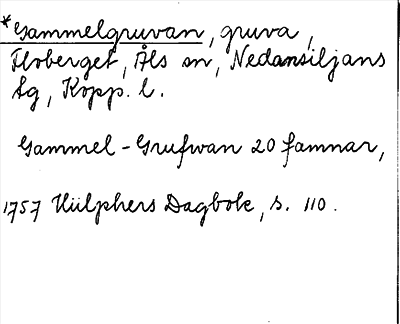 *Gammelgruvan, gruva,
Floberget, Åls sn, Nedansiljans
tg, Kopp. l.
Gammel-Grufwan 20 famnar,
1757 Hülphers Dagbok, s. 110.